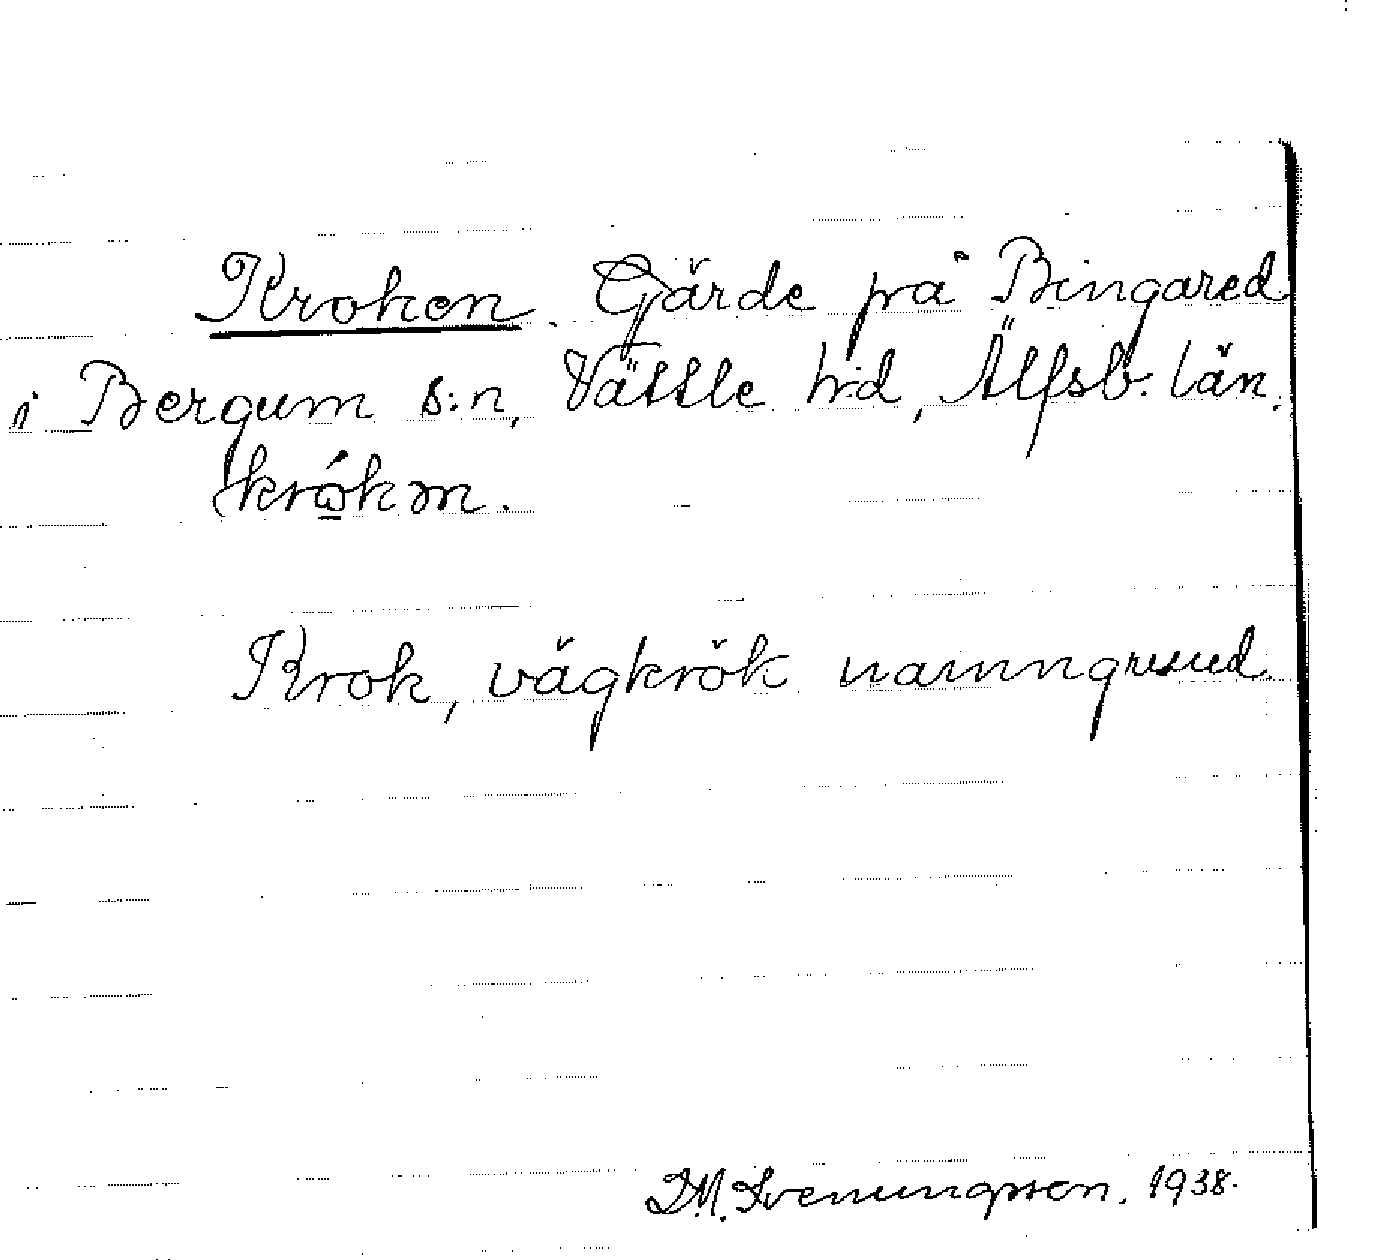 Kroken. Gärde på Bingared
i Bergum s:n, Vättle h:d, Älfsb. län.
krókən.
Krok, vägkrök namngivand
D.M. Sveningsson. 1938.